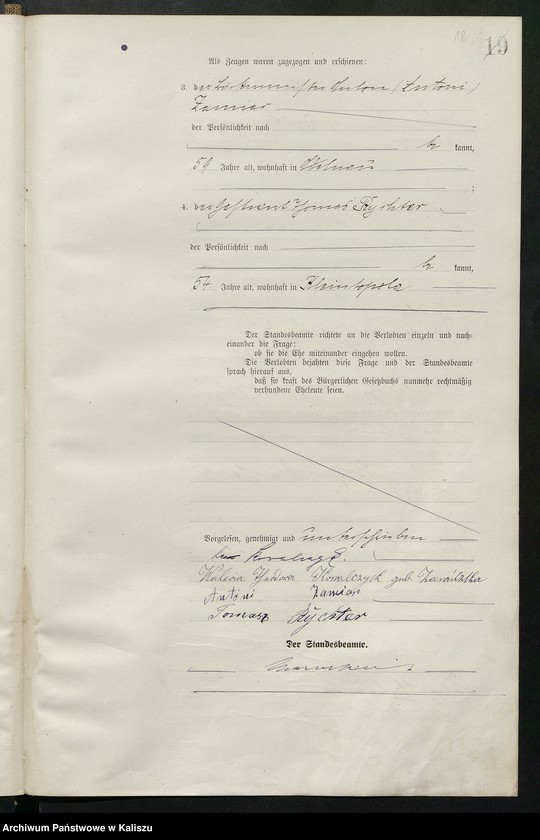 18
19
Als Zeugen waren zugezogen und erschienen:
3. der Anton (Antoni)
Zamiar
der Persönlichkeit nach
be kannt,
59 Jahre alt, wohnhaft in
;
4. der Thomas Rychter
der Persönlichkeit nach
be kannt,
57 Jahre alt, wohnhaft in Kleintopola
Der Standesbeamte richtete an die Verlobten einzeln und nach-
einander die Frage:
ob sie die Ehe miteinander eingehen wollen.
Die Verlobten bejahten diese Frage und der Standesbeamte
sprach hierauf aus,
daß sie kraft des Bürgerlichen Gesetzbuchs nunmehr rechtmäßig
verbundene Eheleute seien.
Vorgelesen, genehmigt und unterschrieben
Kowalczyk geb.
Antoni Zamiar
Tomasz Rychter
Der Standesbeamte.
Archiwum Państwowe w Kaliszu